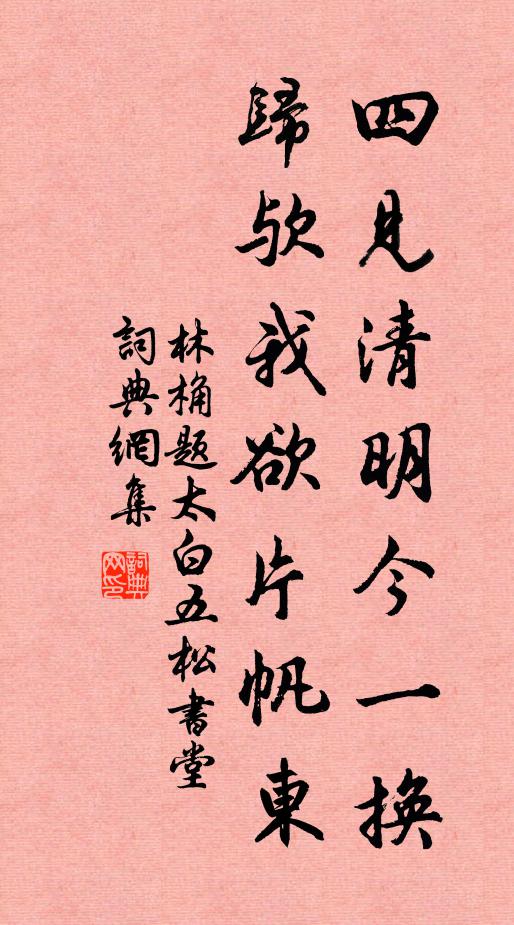 四見清明今一換
歸歟我欲片帆東
林桷題太白五松書堂
詞典網集
詞典網印